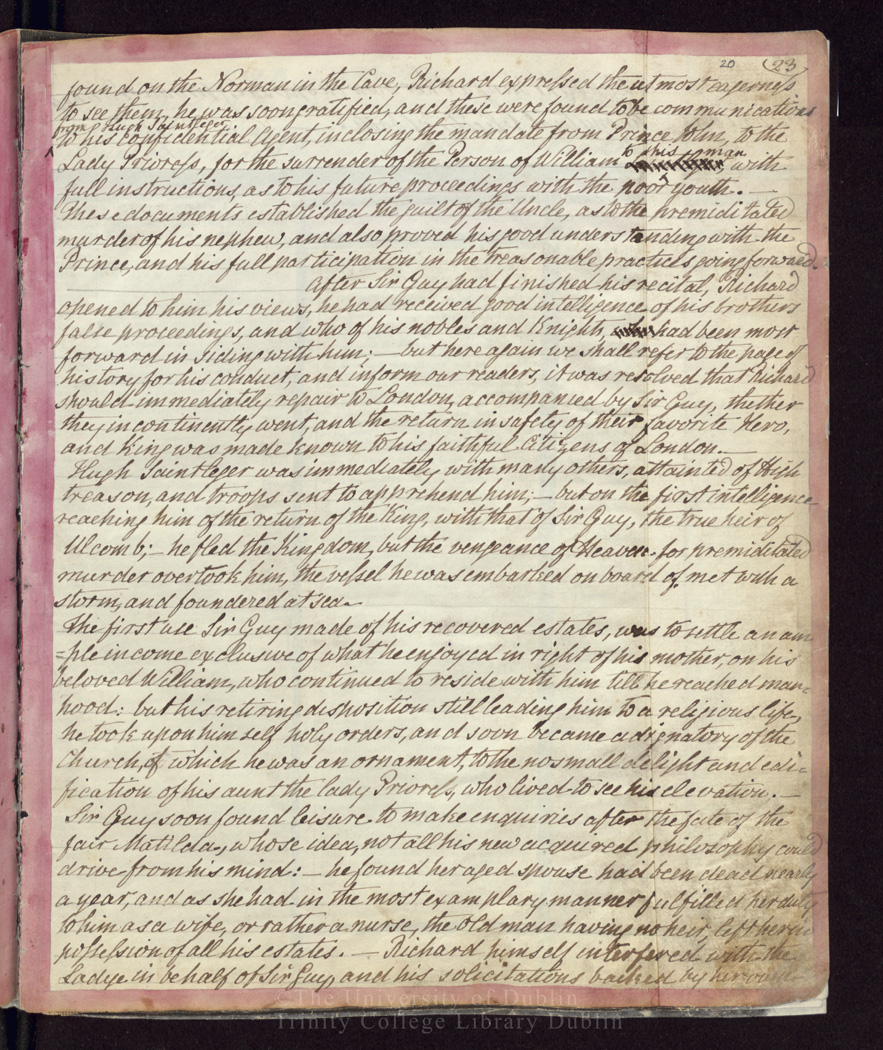 20 (23
found on the Norman in the Cave, Richard expressed the utmost eagerness
to see them, he was soon gratified, and these were found to be communications
from Hugh Saintleger
to his confidential Agent, inclosing the mandate from Prince John, to the
to this woman
Lady Prioress, for the surrender of the Person of William with
full instructions, as to his future proceedings with the poor youth. —
These documents established the guilt of the Uncle, as to the premiditated
murder of his nephew, and also proved his good understanding with the
Prince, and his full participation in the treasonable practices going forward.
After Sir Guy had finished his recital, Richard
opened to him his views, he had received good intelligence of his brothers
false proceedings, and who of his nobles and Knights, had been most
forward in siding with him; — but here again we shall refer to the page of
history for his conduct, and inform our readers, it was resolved that Richard
should immediately repair to London, accompanied by Sir Guy, thether
they incontinently went, and the return in safety of their favorite Hero,
and King was made known to his faithful Citizens of London. —
Hugh Saintleger was immediately with many others, attainted of High
treason, and troops sent to apprehend him; — but on the first intelligence
reaching him of the return of the King, with that of Sir Guy, the true heir of
Ulcomb; — he fled the Kingdom, but the vengeance of Heaven for premiditated
murder overtook him, the vessel he was embarked on board of, met with a
storm, and foundered at sea.
The first use Sir Guy made of his recovered estates, was to settle an am
=ple income exclusive of what he enjoyed in right of his mother, on his
beloved William, who continued to reside with him till he reached man=
hood: but his retiring disposition still leading him to a religious life,
he took upon himself holy orders, and soon became a dignatory of the
Church, of which he was an ornament, to the no small delight and edi=
fication of his aunt the lady Prioress, who lived to see his elevation. —
Sir Guy soon found leisure to make enquiries after the fate of the
fair Matilda, whose idea, not all his new acquired philosophy could
drive from his mind: — he found her aged spouse had been dead nearly
a year, and as she had in the most examplary manner fulfilled her duty
to him as a wife, or rather a nurse, the old man having no heir, left her in
possession of all his estates. — Richard himself interfered with the
Ladye in behalf of Sir Guy, and his solicitations backed by her own
© The University of Dublin
Trinity College Library Dublin